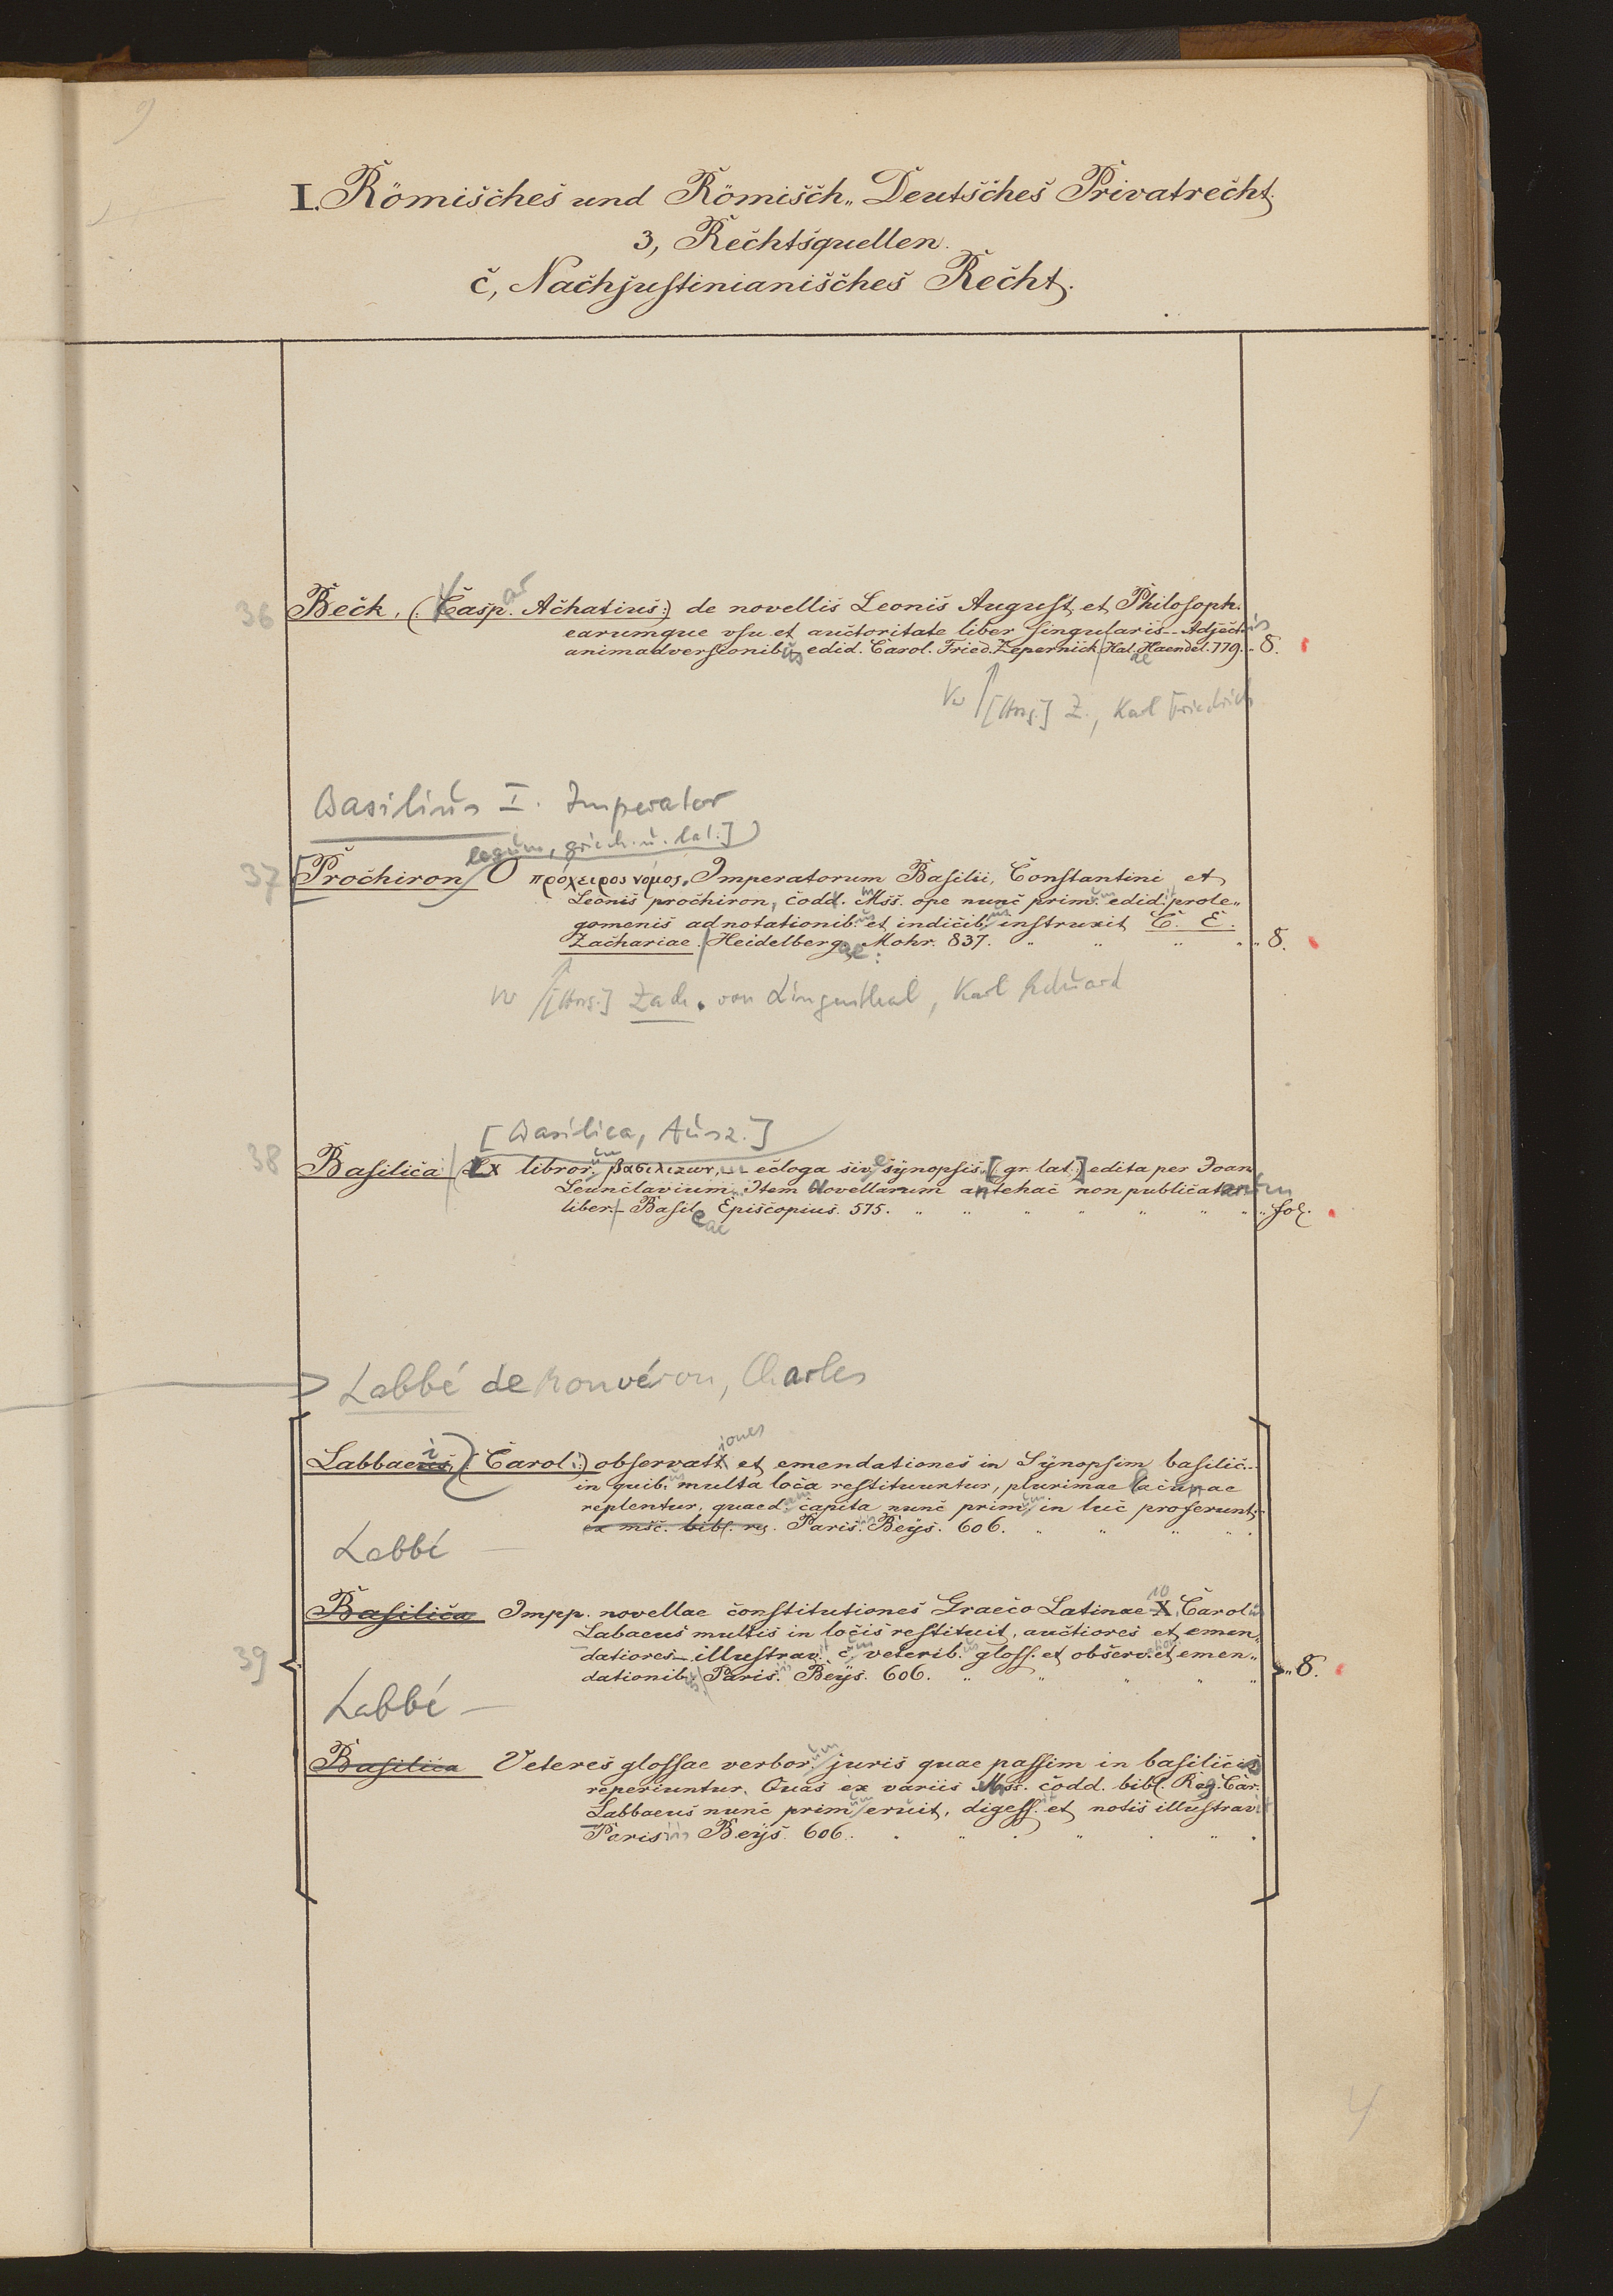 I. Römisches und Römisch„ Deutsches Privatrecht.
3, Rechtsquellen.
c, Nachjustinianisches Recht.
36 Beck, (: Casp. Achatius:) de novellis Leonis August. et Philosoph.
earumque usu et auctoritate liber singularis -- Adjectis
animadversionibus edid. Carol. Fried. Zepernick Hal. Haendel. 779. „ 8.
Vw [Hrsg.] Z., Karl Friedrich
Basilius I. Imperator
legum, griech. u. lat.]
37 [Prochiron Ο πρόχειρος νόμος. Imperatorum Basilii, Constantini et
Leonis prochiron, codd. Mss. ope nunc primum edidit prole„
gomenis adnotationibus et indicibus instruxit C. E.
Zachariae. Heidelbergae: Mohr. 837. „ „ „ „ 8.
Vw [Hrsg.] Zach. von Lingenthal, Karl Eduard
[Basilica, Ausz.]
38 Basilica Ex librorum βασιλικων, ecloga sive synopsis [gr. lat.] edita per Joan
Leunclavium. Item Novellarum antehac non publicatarum
liber. - Basileae Episcopius. 575. „ „ „ „ „ „ „ fol.
Labbé de Monvéron, Charles
Labbaeus, (: Carol:) observationes et emendationes in Synopsim basilic..
in quibus multa loca restituuntur, plurimae lacunae
replentur, quaedam capita nunc primum in luc proferunt.
ex msc. bibl. reg. Parisiis Beys. 606. „ „ „ „
Labbé —
Basilica Impp. novellae constitutiones Graeco Latinae X 10 Carolus
Labaeus multis in locis restituit, auctiores et emen„
39 datiores - illustravit cum veteribus gloss. et observation. et emen„
dationibus Parisiis Beys. 606. „ „ „ „ „ 8.
Labbé —
Basilica Veteres glossae verborum juris quae passim in basilicis
reperiuntur. Quas ex variis Mss. codd. bibl. Reg. Car.
Labbaeus nunc primum eruit, digess.it et notis illustravit
Parisiis Beys. 606. . „ . „ . „ .
4